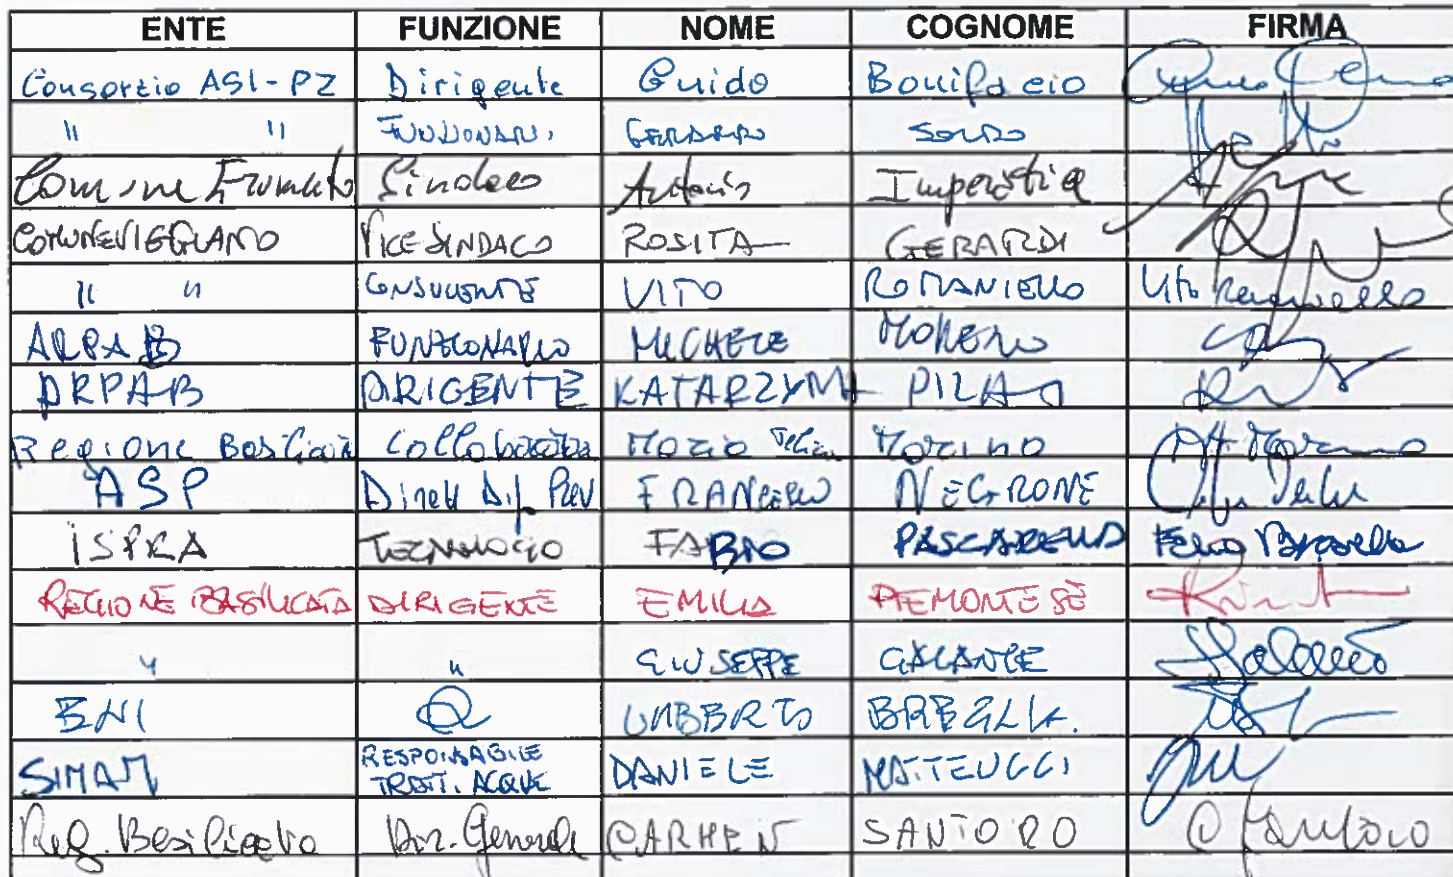 ENTE FUNZIONE NOME COGNOME FIRMA
Consorzio ASI-PZ Dirigente Guido Bonifacio
" " FUNZIONARI. GERARDO
Comune Grumento Sindaco Antonio Imperatrice
COMUNE VIGGIANO VICE SINDACO ROSITA GERARDI
" " CONSULENTE VITO ROMANIELLO Vito Romaniello
ARPAB FUNZIONARIO MICHELE MORENO
ARPAB DIRIGENTE KATARZYNA PILAT
Regione Basilicata Collaboratore Morino
ASP Dirett Dip Prev FRANCESCO NEGRONE
ISPRA TECNOLOGO FABIO PASCARELLA Fabio Pascarella
REGIONE BASILICATA DIRIGENTE EMILIA PIEMONTESE
" " GIUSEPPE GALANTE
ENI UMBERTO
SIMAM RESPONSABILE TRATT. ACQUE DANIELE MATTEUCCI
Reg. Basilicata Dir. Generale CARMEN SANTORO